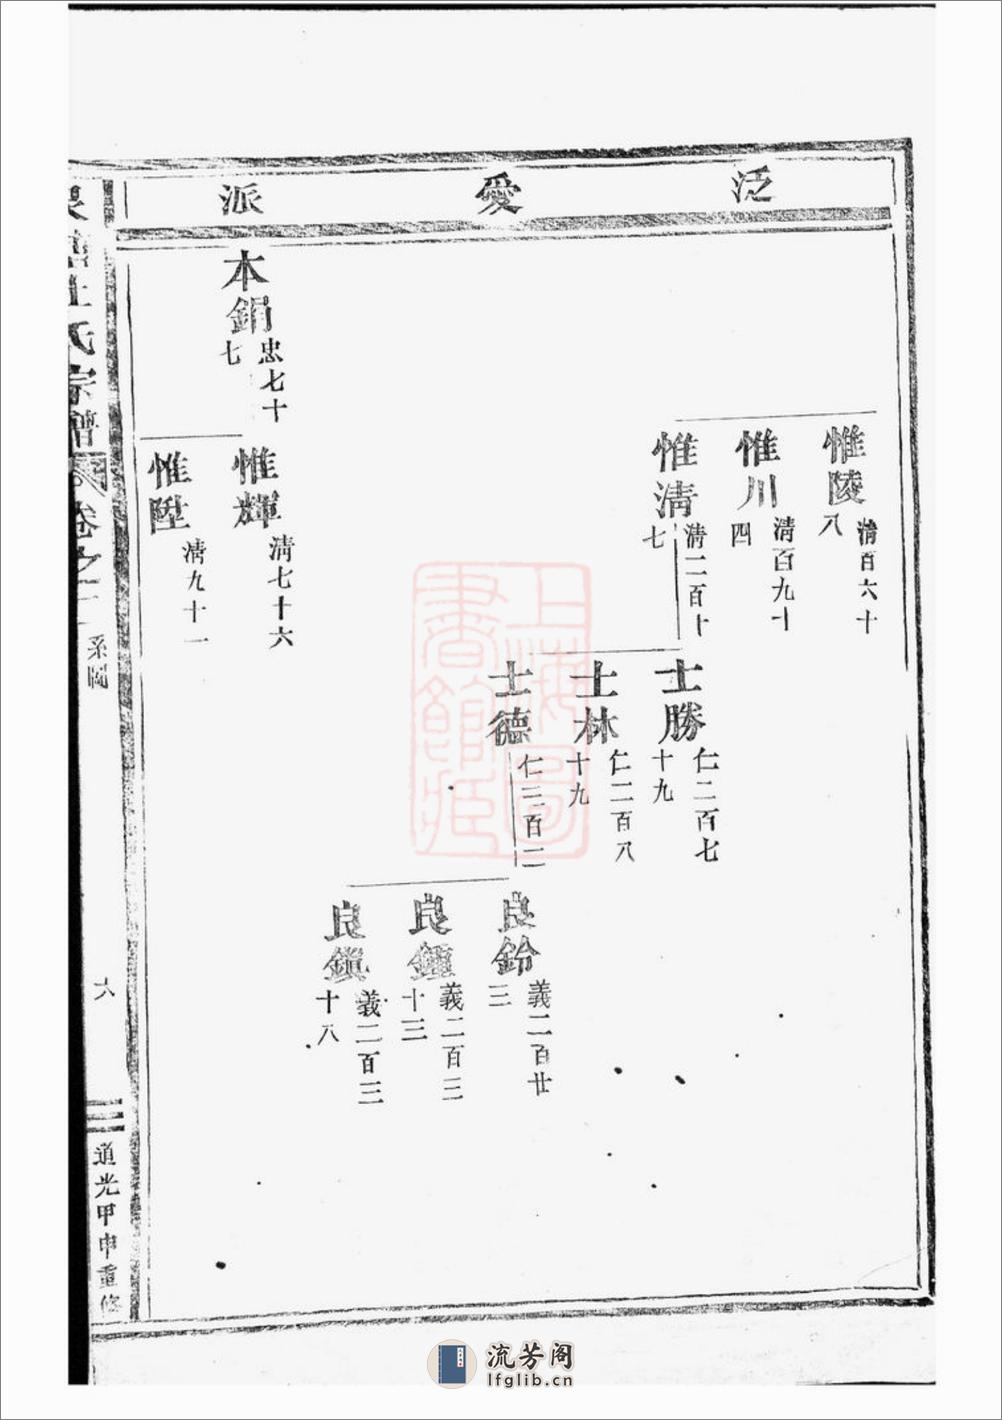 泛愛派
惟陵
清百六十
八
惟川
清百九十
四
惟清
清二百十
七
士勝
仁二百七
十九
士林
仁二百八
十九
士德
仁三百二
良鈴
義二百廿
三
良鍾
義二百三
十三
良鎮
義二百三
十八
本鋗
忠七十
七
惟輝
清七十六
惟陞
清九十一
杜氏宗譜
卷之二
系圖
六
道光甲申重修
上海圖書館藏
流芳阁
lfglib.cn